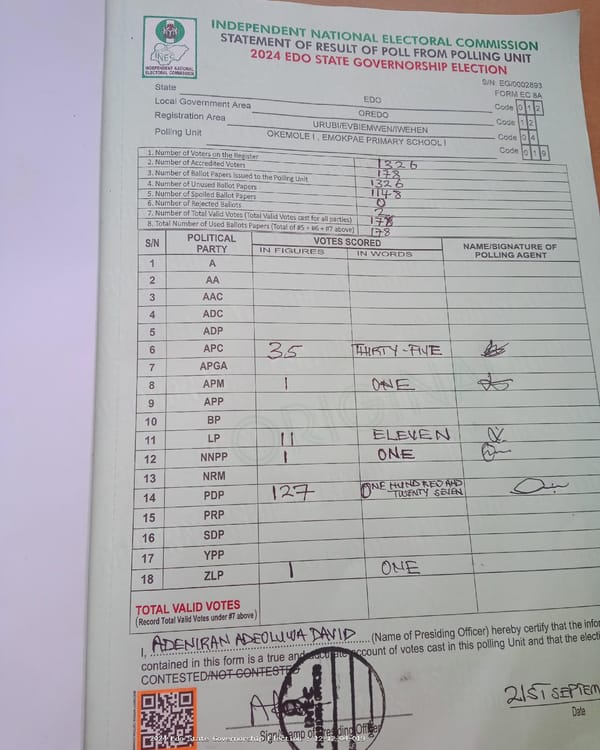 INDEPENDENT NATIONAL ELECTORAL COMMISSION
STATEMENT OF RESULT OF POLL FROM POLLING UNIT
2024 EDO STATE GOVERNORSHIP ELECTION
INEC
INDEPENDENT NATIONAL
ELECTORAL COMMISSION
S/N EG/0002893
FORM EC 8A
State EDO Code 0 1 2
Local Government Area OREDO Code 1 2
Registration Area URUBI/EVBIEMWEN/IWEHEN Code 0 4
Polling Unit OKEMOLE I , EMOKPAE PRIMARY SCHOOL I Code 0 1 9
1. Number of Voters on the Register 1326
2. Number of Accredited Voters 178
3. Number of Ballot Papers Issued to the Polling Unit 1326
4. Number of Unused Ballot Papers 1148
5. Number of Spoiled Ballot Papers 0
6. Number of Rejected Ballots 2
7. Number of Total Valid Votes (Total Valid Votes cast for all parties)
8. Total Number of Used Ballots Papers (Total of #5 + #6 + #7 above) 178
S/N POLITICAL PARTY VOTES SCORED NAME/SIGNATURE OF POLLING AGENT
IN FIGURES IN WORDS
1 A
2 AA
3 AAC
4 ADC
5 ADP
6 APC 35 THIRTY-FIVE
7 APGA
8 APM 1 ONE
9 APP
10 BP
11 LP 11 ELEVEN
12 NNPP 1 ONE
13 NRM
14 PDP 127 ONE HUNDRED AND TWENTY SEVEN
15 PRP
16 SDP
17 YPP
18 ZLP 1 ONE
ORIGINAL
TOTAL VALID VOTES
(Record Total Valid Votes under #7 above)
I, ADENIRAN ADEOLUWA DAVID (Name of Presiding Officer) hereby certify that the infor
contained in this form is a true and accurate account of votes cast in this polling Unit and that the electi
CONTESTED/NOT CONTESTED
21ST SEPTEM
Sign/Stamp of Presiding Officer
Date
2024 Edo State Governorship Election - 12-12-04-019